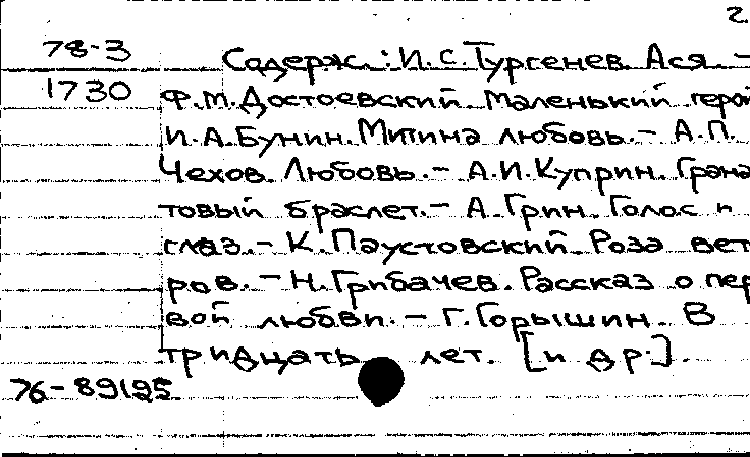 2
78-3 Содерж.: И.С.Тургенев. Ася. -
1730 Ф.М.Достоевский. Маленький герой
И.А.Бунин. Митина любовь. - А.П.
Чехов. Любовь. - А.И.Куприн. Грана
товый браслет. - А.Грин. Голос и
глаз. - К.Паустовский. Роза вет
ров. - Н.Грибачев. Рассказ о пер
вой любви. - Г.Горышин. В
тридцать лет. [и др.].
76-89195